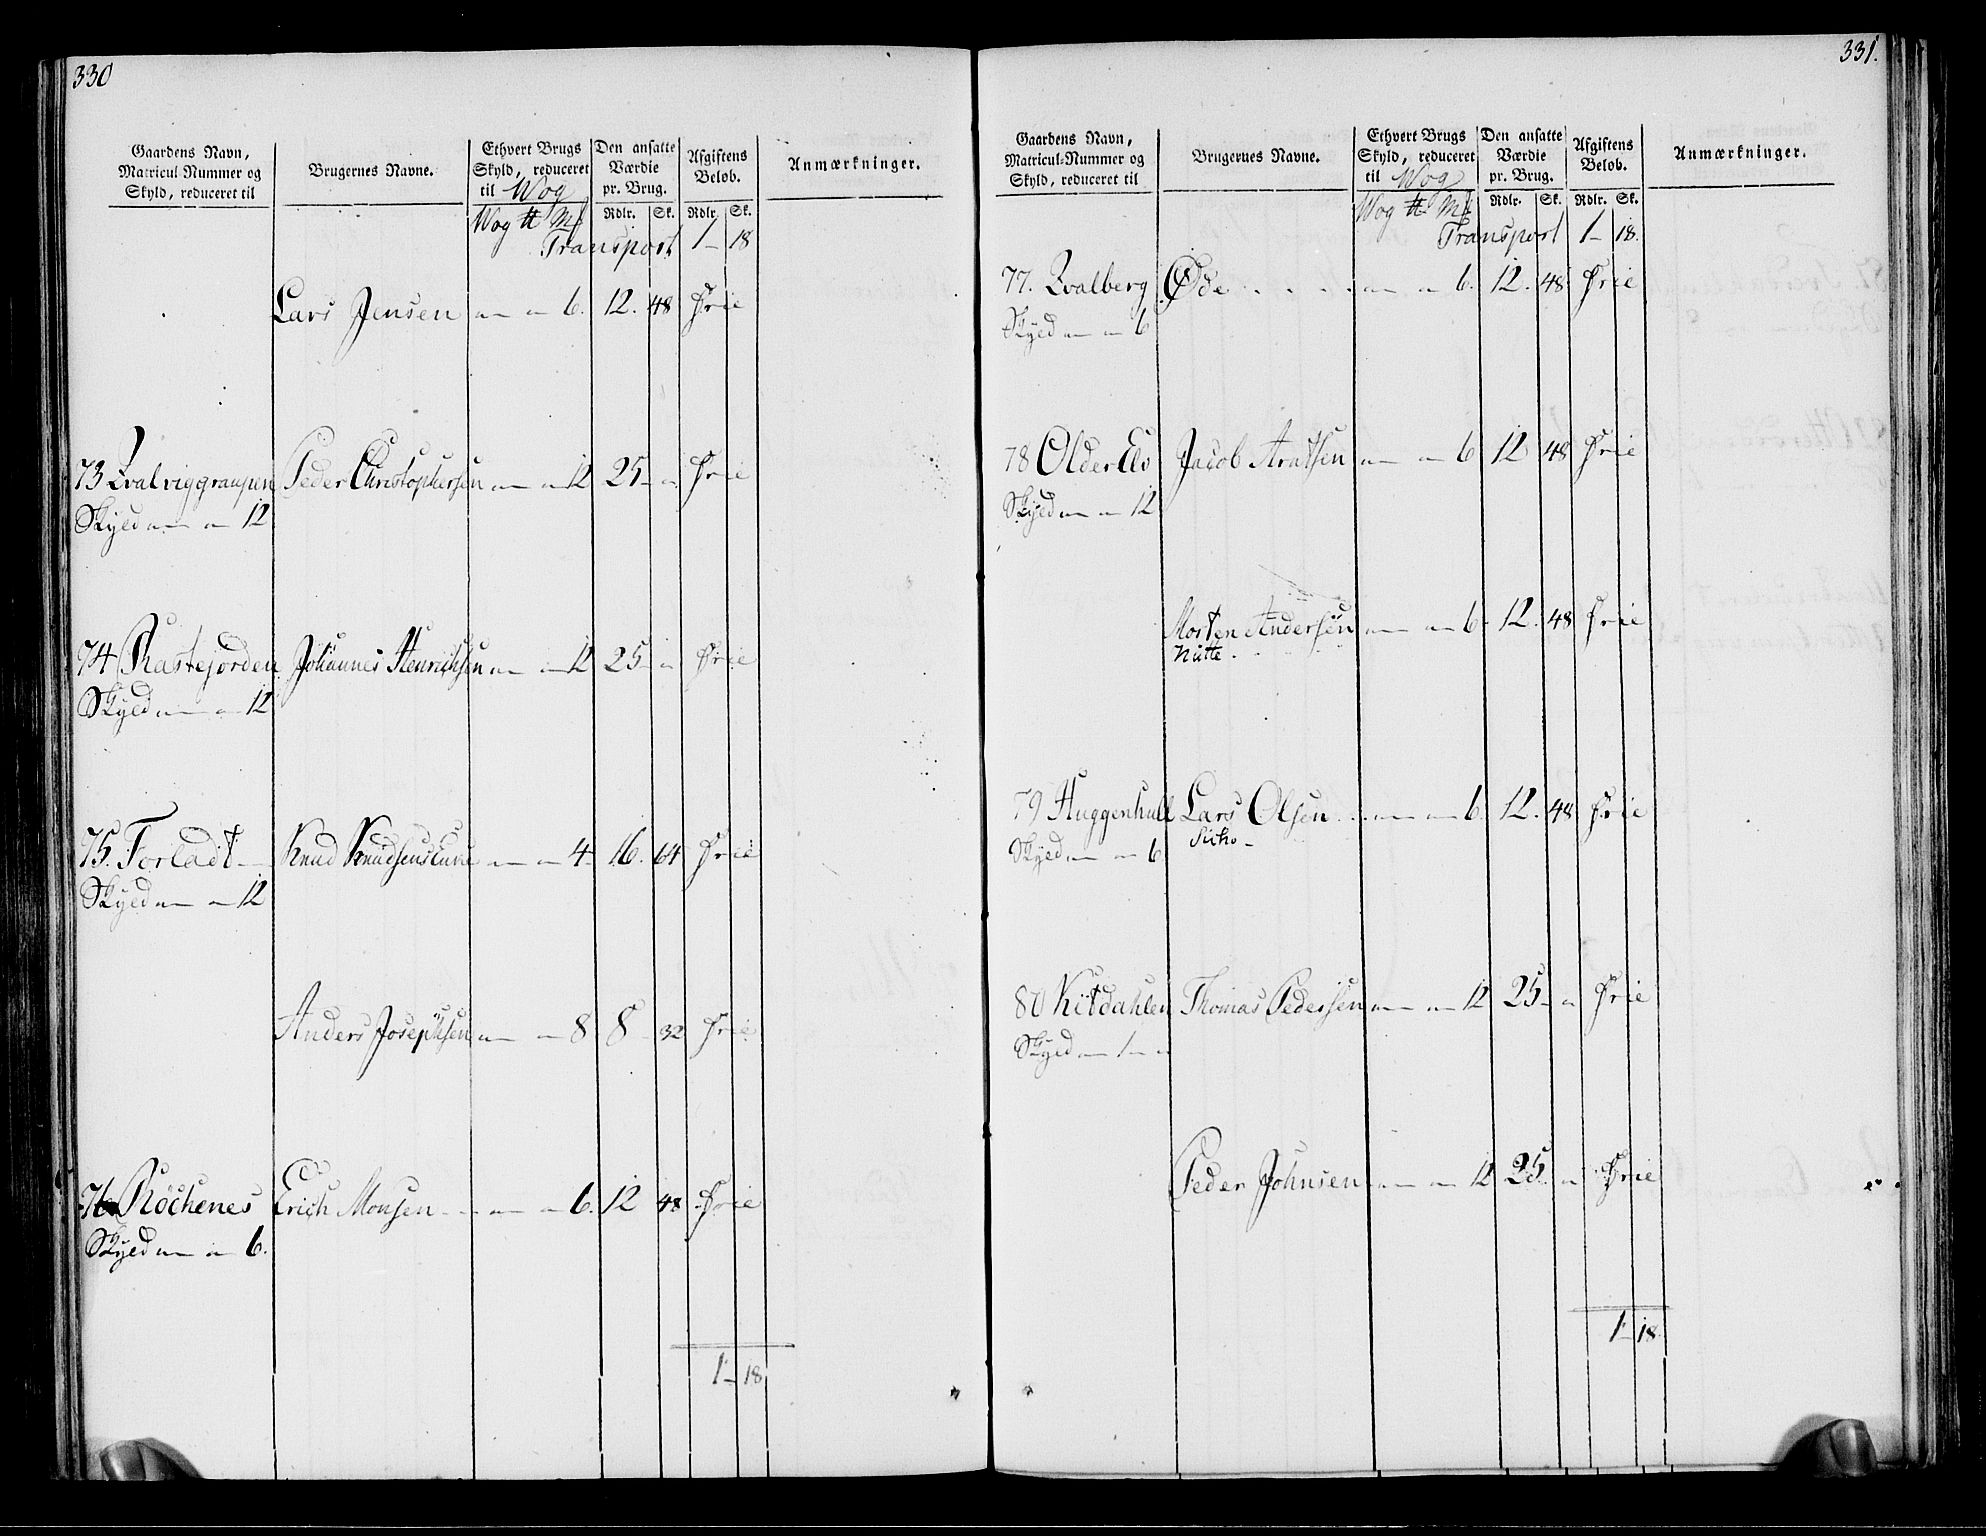 330
Gaardens Navn, Matricul Nummer og Skyld, reduceret til
Brugernes Navne.
Ethvert Brugs Skyld, reduceret til Wog
Den ansatte Værdie pr. Brug.
Afgiftens Beløb.
Anmærkninger.
Wog ℔ M𝔣 Rdlr. Sk. Rdlr. Sk.
Transport 1 – 18
Lars Jensen " " 6. 12. 48 Frie
73 Qvalviggraupen Peder Christophersen " " 12 25 – " Frie
Skyld " " 12
74 Rastefjorden Johannes Henrichsen " " 12 25 – " Frie
Skyld " " 12
75. Forladt Knud Knudsens " " 4 16. 64 Frie
Skyld " " 12
Anders Josephsen " " 8 8 – 32 Frie
76 Röchenes Erich Monsen " " 6. 12 48 Frie
Skyld " " 6.
1 – 18
331.
Gaardens Navn, Matricul-Nummer og Skyld, reduceret til
Brugernes Navne.
Ethvert Brugs Skyld, reduceret til Wog
Den ansatte Værdie pr. Brug.
Afgiftens Beløb.
Anmærkninger.
Wog ℔ M𝔣 Rdlr. Sk. Rdlr. Sk.
Transport 1 – 18.
77. Qvalberg Øde " " 6. 12. 48 Frie
Skyld " " 6
78 Older Elv Jacob Aratsen " " 6 12 48 Frie
Skyld " " 12
Morten Andersen " " 6 12. 48 Frie
Nutte
79 Huggenhull Lars Olsen " " 6. 12. 48 Frie
Skyld " " 6 Sicko
80 Kitdahlen Thomas Pedersen " " 12 25 – " Frie
Skyld " 1 – "
Peder Johnsen " " 12 25 – " Frie
1 – 18